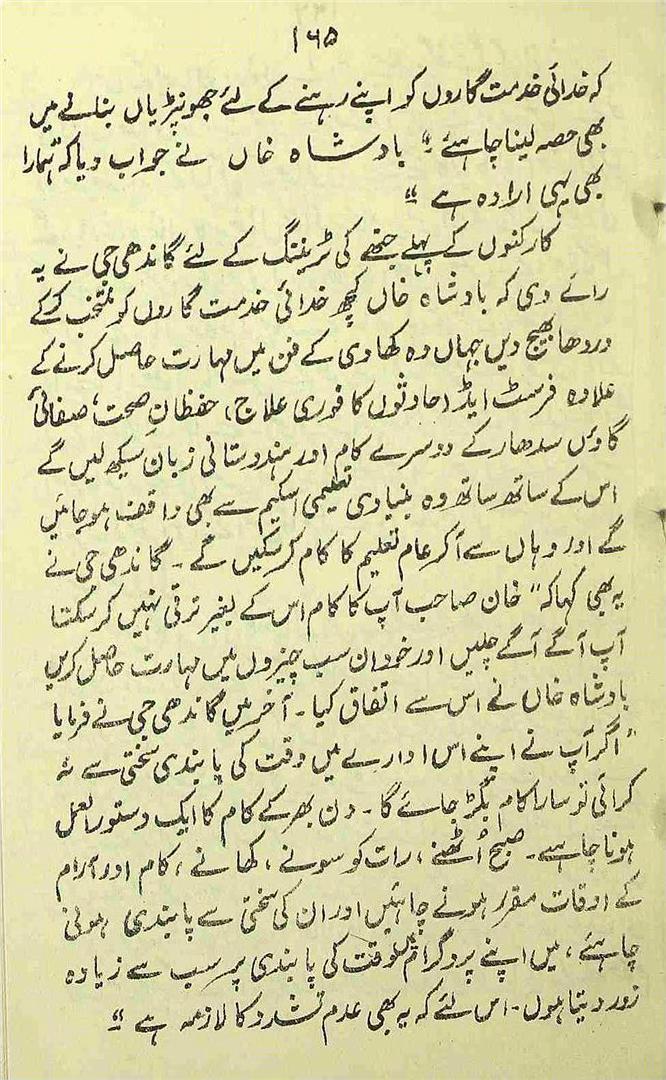 ۱۶۵
کہ خدائی خدمت گاروں کو اپنے رہنے کے لئے جھونپڑیاں بنانے میں
بھی حصہ لینا چاہئے ؟" بادشاہ خاں نے جواب دیا کہ "ہمارا
بھی یہی ارادہ ہے "
کارکنوں کے پہلے جتھے کی ٹریننگ کے لئے گاندھی جی نے یہ
رائے دی کہ بادشاہ خاں کچھ خدائی خدمت گاروں کو منتخب کر کے
وردھا بھیج دیں جہاں وہ کھادی کے فن میں مہارت حاصل کرنے کے
علاوہ فرسٹ ایڈ (حادثوں کا فوری علاج، حفظانِ صحت، صفائی
گاؤں سدھار کے دوسرے کام اور ہندوستانی زبان سیکھ لیں گے
اس کے ساتھ ساتھ وہ بنیادی تعلیمی اسکیم سے بھی واقف ہو جائیں
گے اور وہاں سے آکر عام تعلیم کا کام کر سکیں گے ۔ گاندھی جی نے
یہ بھی کہا کہ " خان صاحب آپ کا کام اس کے بغیر ترقی نہیں کر سکتا
آپ آگے آگے چلیں اور خود ان سب چیزوں میں مہارت حاصل کریں
بادشاہ خاں نے اس سے اتفاق کیا ۔ آخر میں گاندھی جی نے فرمایا
" اگر آپ نے اپنے اس ادارے میں وقت کی پابندی سختی سے نہ
کرائی تو سارا کام بگڑ جائے گا ۔ دن بھر کے کام کا ایک دستور العمل
ہونا چاہئے ۔ صبح اُٹھنے ، رات کو سونے ، کھانے ، کام اور آرام
کے اوقات مقرر ہونے چاہئیں اور ان کی سختی سے پابندی ہونی
چاہئے ، میں اپنے پروگرام میں وقت کی پابندی پر سب سے زیادہ
زور دیتا ہوں ۔ اس لئے کہ یہ بھی عدم تشدد کا لازمہ ہے "